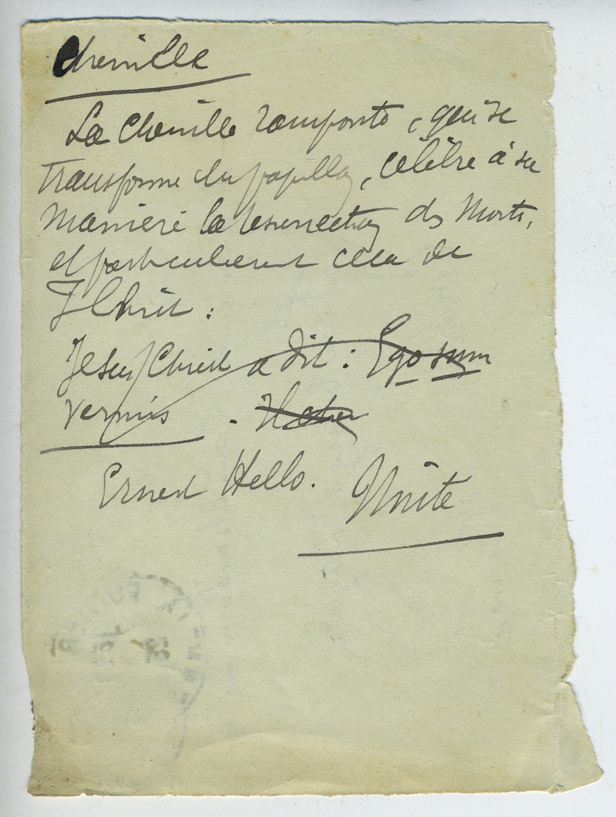 Chenille
La Chenille rampante, qui se
transforme en papillon, célèbre à sa
manière la résurrection des Morts,
et particulièrement celle de
J Christ :
Jesus Christ a dit : Ego sum
vermis.
Ernest Hello. Unité